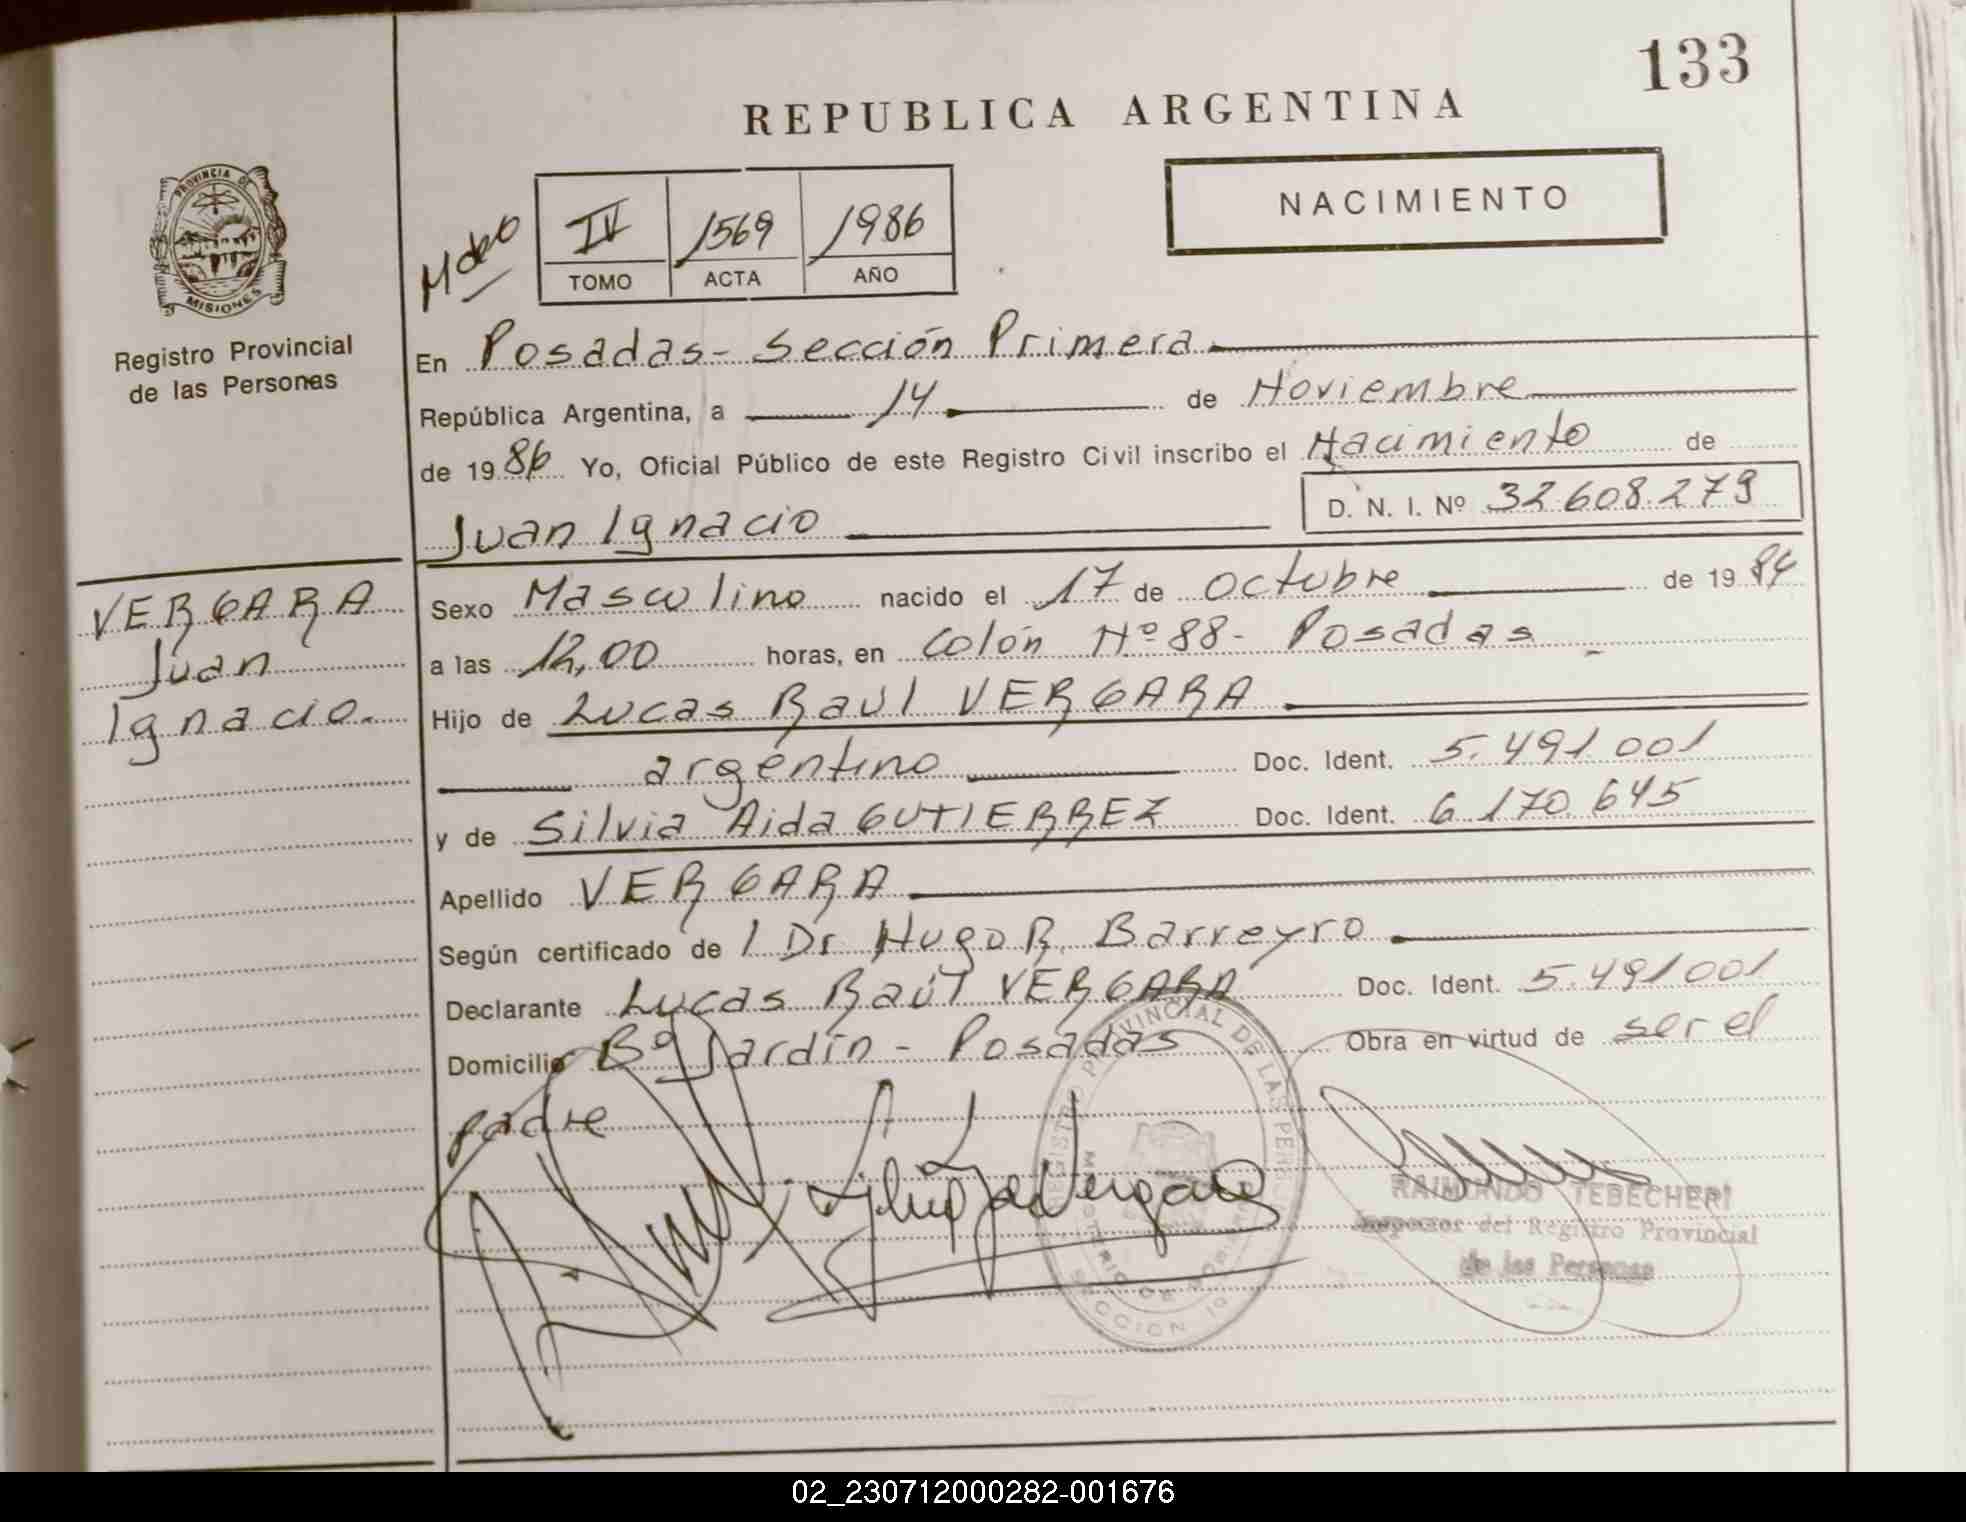 133
REPUBLICA ARGENTINA
NACIMIENTO
PROVINCIA DE
MISIONES
Registro Provincial
de las Personas
IV 1569 1986
TOMO ACTA AÑO
En Posadas - Sección Primera
República Argentina, a 14 de Noviembre
de 1986 Yo, Oficial Público de este Registro Civil inscribo el Nacimiento de
Juan Ignacio D. N. I. Nº 32.608.279
VERGARA
Juan
Ignacio.
Sexo Masculino nacido el 17 de octubre de 1984
a las 12,00 horas, en Colón Nº 88 - Posadas
Hijo de Lucas Raúl VERGARA
argentino Doc. Ident. 5.491.001
y de Silvia Aida GUTIERREZ Doc. Ident. 6.170.645
Apellido VERGARA
Según certificado de l Dr Hugo R. Barreyro
Declarante Lucas Raúl VERGARA Doc. Ident. 5.491001
Domicilio Bº Jardín - Posadas Obra en virtud de ser el
padre
REGISTRO PROVINCIAL DE LAS PERSONAS
SECCION 1º
RAIMUNDO TEBECHERI
Inspector del Registro Provincial
de las Personas
02_230712000282-001676